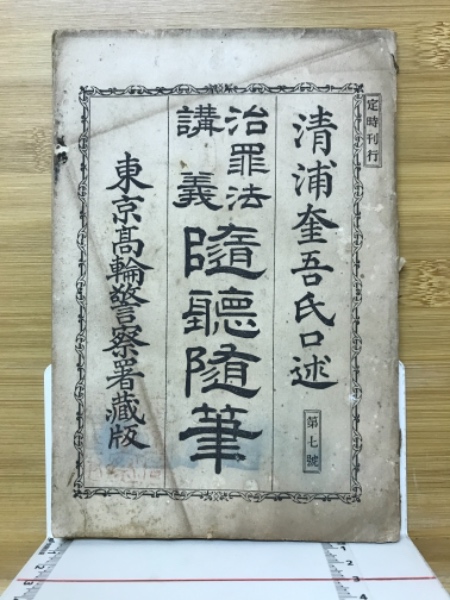 定時刊行
清浦奎吾氏口述
第七號
治罪法
講義
隨聽随筆
東京髙輪警察署藏版